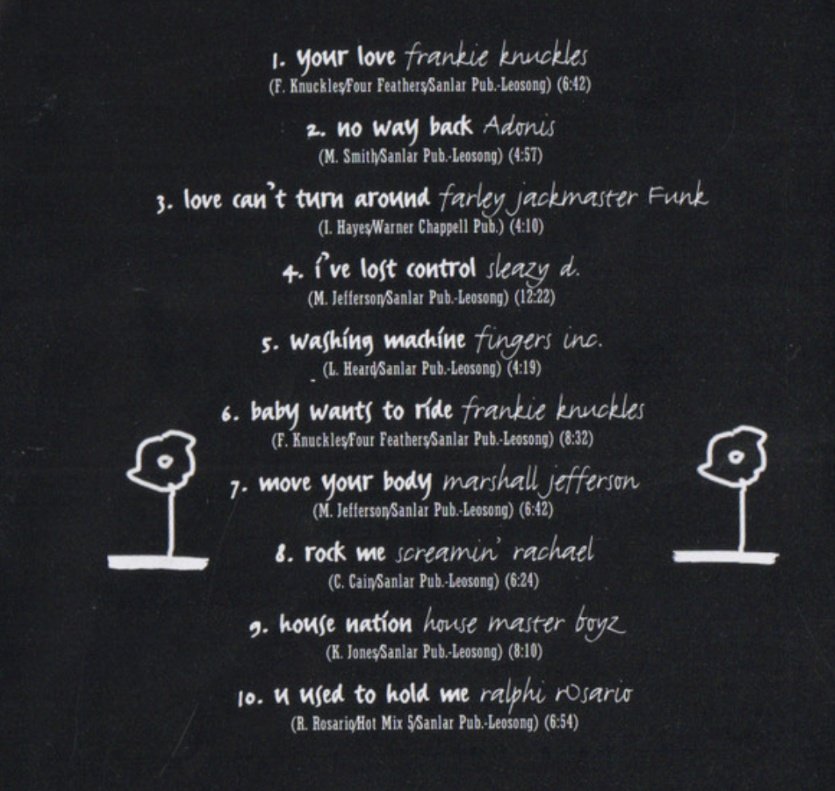 1. your love frankie knuckles
(F. Knuckles/Four Feathers/Sanlar Pub.-Leosong) (6:42)
2. no way back Adonis
(M. Smith/Sanlar Pub.-Leosong) (4:57)
3. love can't turn around farley jackmaster Funk
(I. Hayes/Warner Chappell Pub.) (4:10)
4. i've lost control sleazy d.
(M. Jefferson/Sanlar Pub.-Leosong) (12:22)
5. washing machine fingers inc.
(L. Heard/Sanlar Pub.-Leosong) (4:19)
6. baby wants to ride frankie knuckles
(F. Knuckles/Four Feathers/Sanlar Pub.-Leosong) (8:32)
7. move your body marshall jefferson
(M. Jefferson/Sanlar Pub.-Leosong) (6:42)
8. rock me screamin' rachael
(C. Cain/Sanlar Pub.-Leosong) (6:24)
9. house nation house master boyz
(K. Jones/Sanlar Pub.-Leosong) (8:10)
10. u used to hold me ralphi rOsario
(R. Rosario/Hot Mix 5/Sanlar Pub.-Leosong) (6:54)